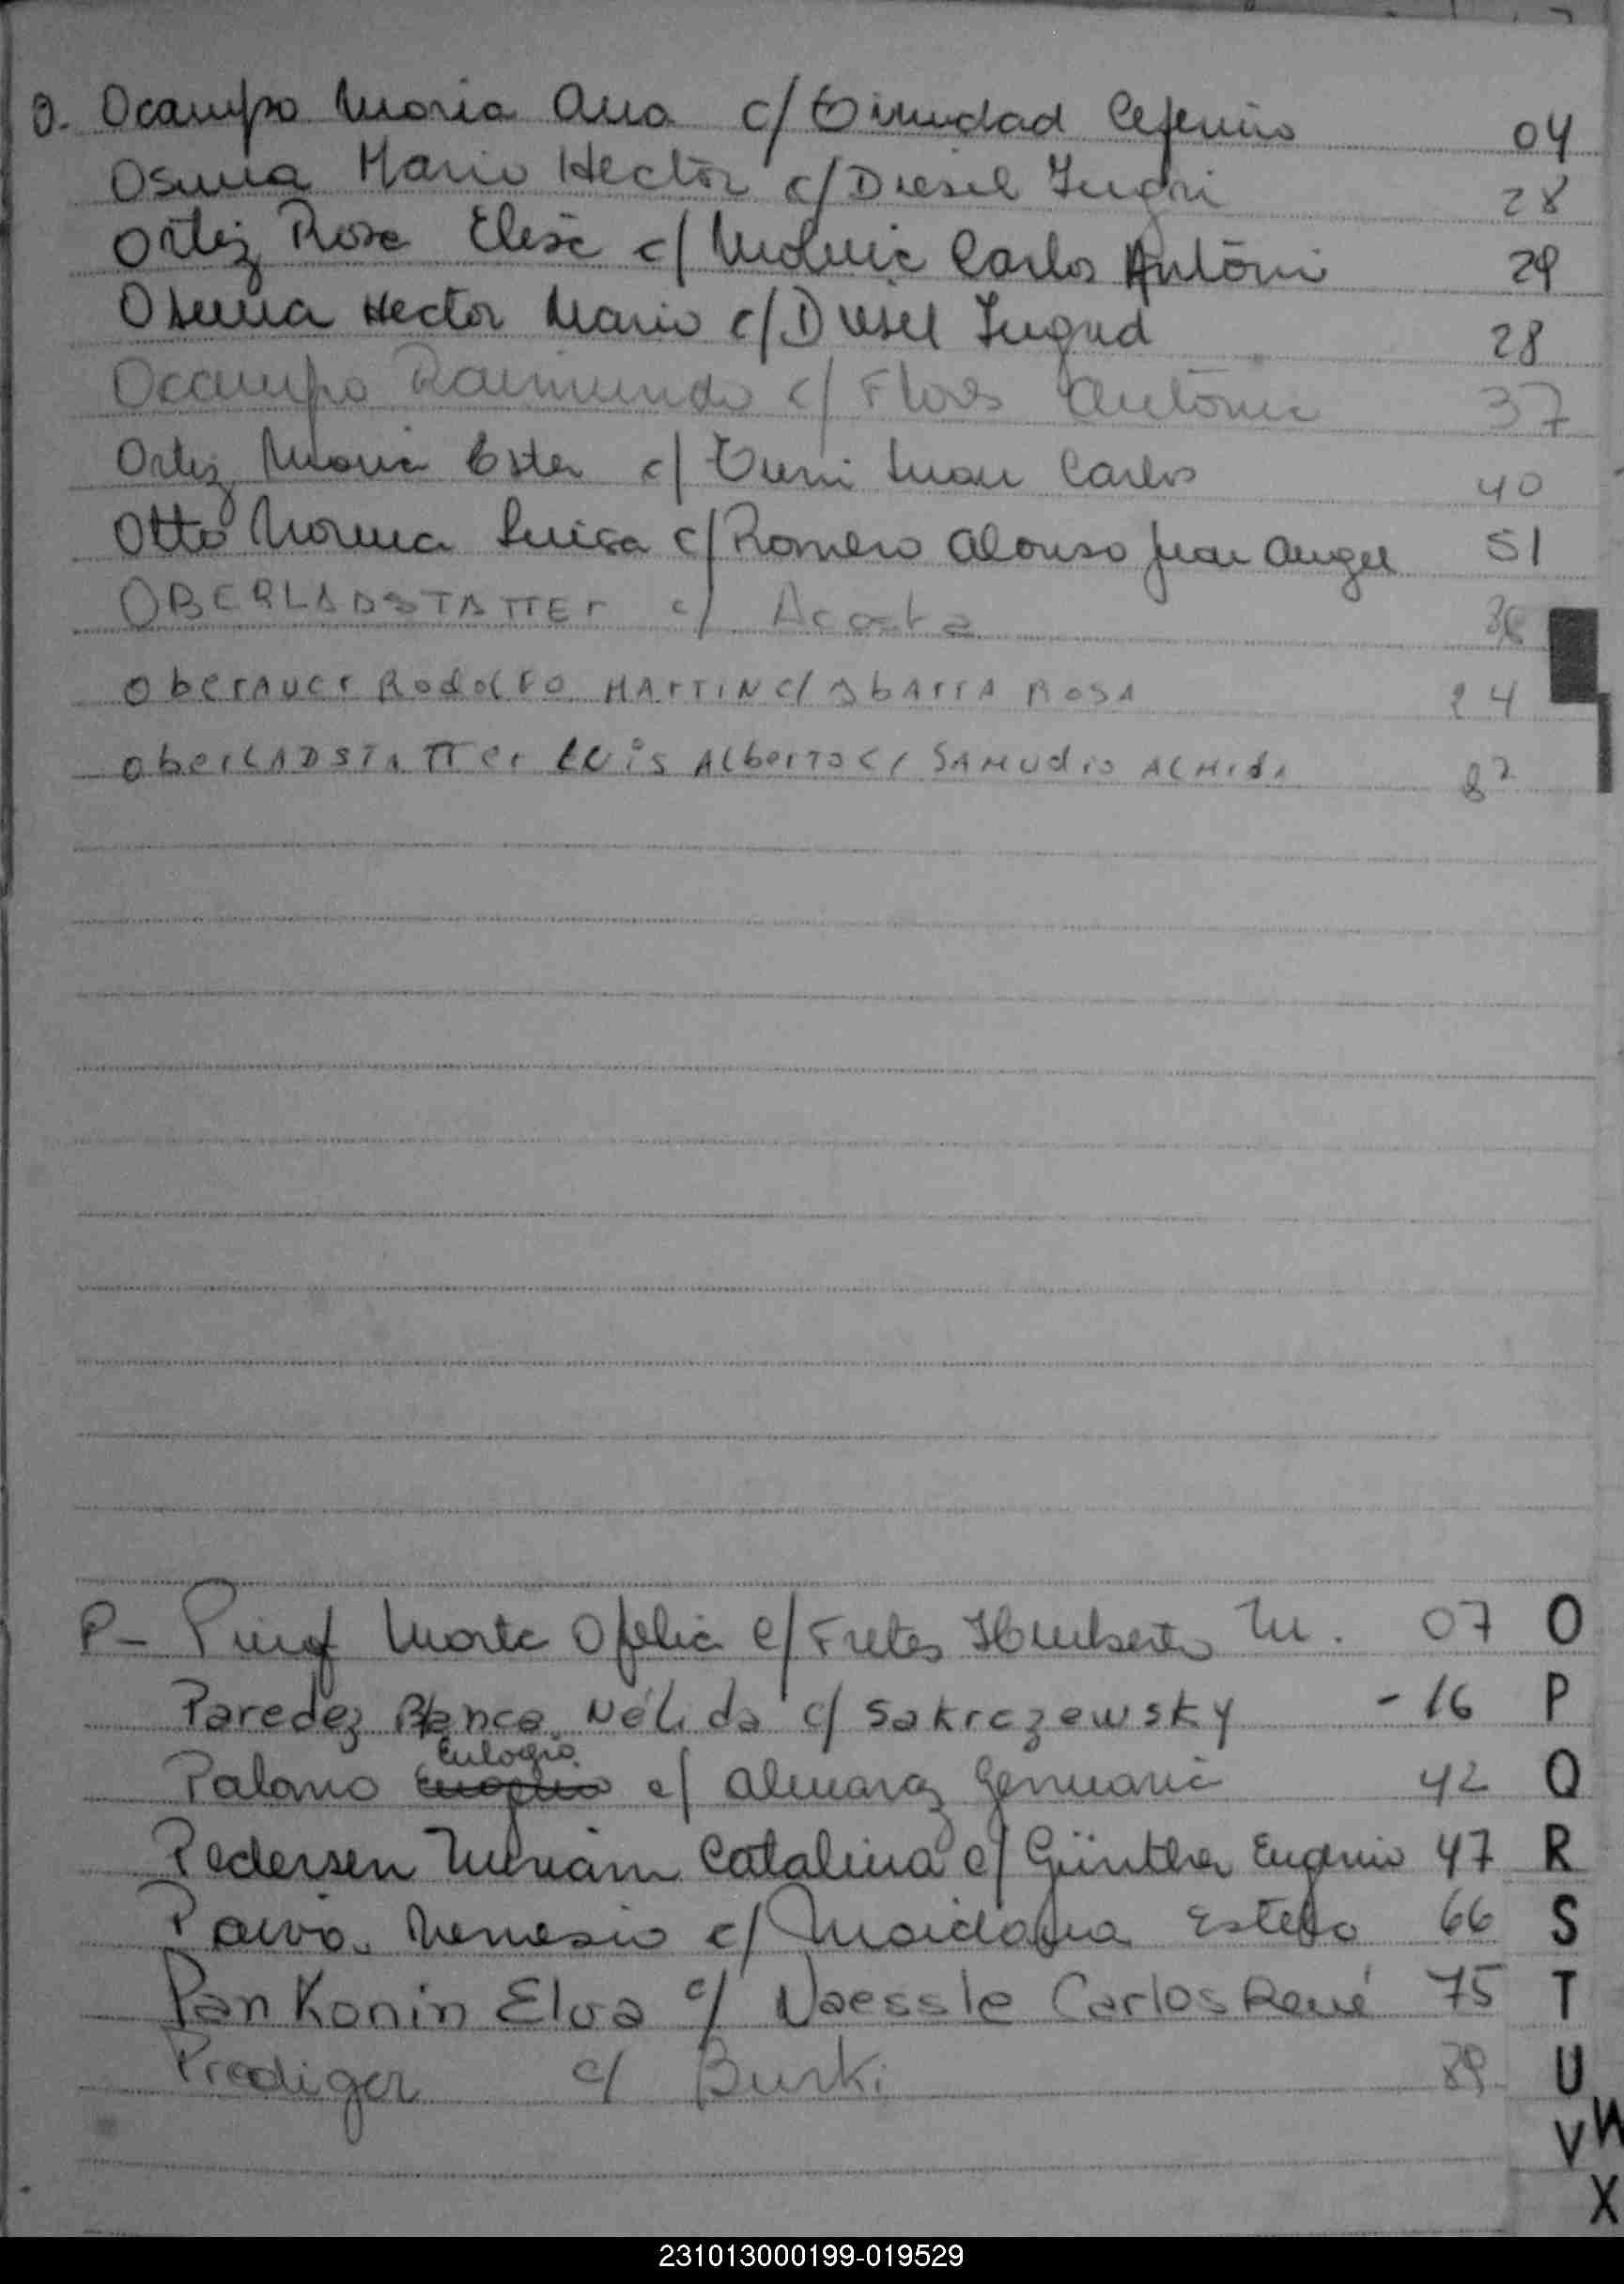 O. Ocampo Maria Ana c/ Trinidad Ceferino 04
Osuna Mario Hector c/ Diesel Ingri 28
Ortiz Rosa Elisa c/ Molina Carlos Antonio 29
Osuna Hector Mario c/ Diesel Ingrid 28
Ocampo Raimundo c/ Flores Antonia 37
Ortiz Maria Ester c/ Juan Carlos 40
Otto Norma Luisa c/ Romero Alonso Juan Angel 51
OBERLADSTATTEr c/ Acosta
OberAuer RodolFO MArTIN c/ IbArrA ROSA 24
OberLADSTATTer LUis AlberTo c/ SAMUdio ALMidA 82
P- Puig Marta Ofelia c/ Fretes Humberto M. 07 O
Paredez Blanca Nélida c/ Sakrczewsky - 16 P
Eulogio
Palomo c/ Almaraz Genuaria 42 Q
Pedersen Miriam Catalina c/ Günther Eugenio 47 R
Paiva Nemesio c/ Maidana Estefa 66 S
PanKonin Elva c/ Naessle Carlos René 75 T
Prediger c/ Burki 89 U
V W
X
231013000199-019529